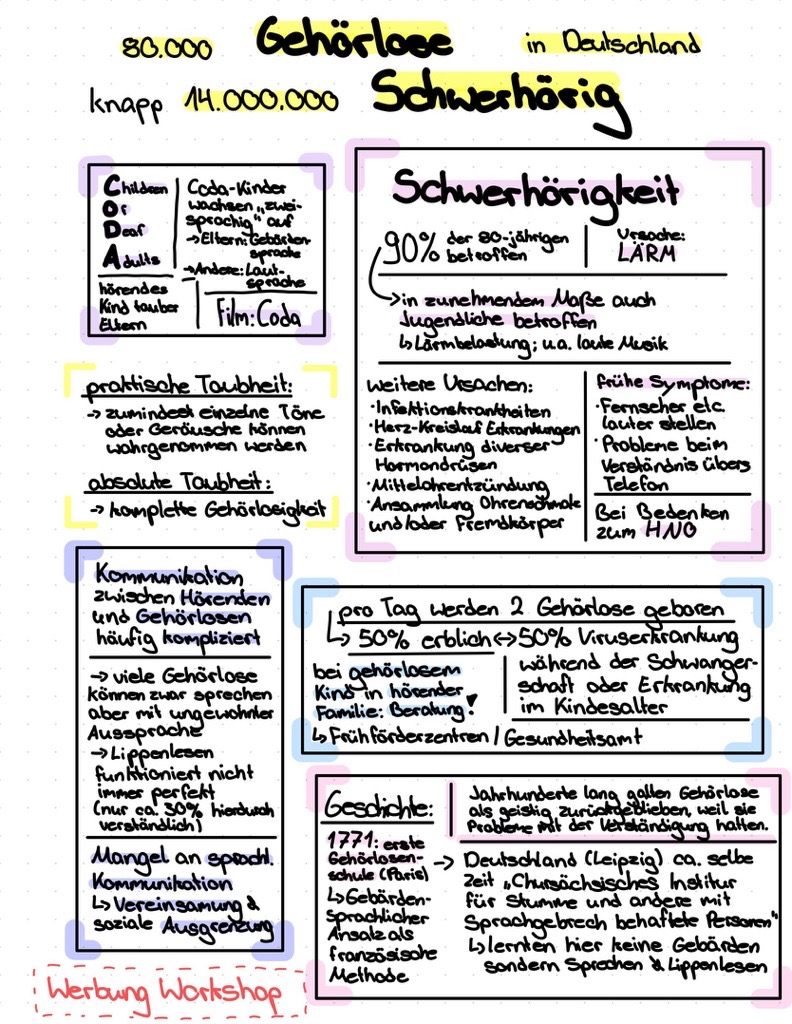 80.000 Gehörlose in Deutschland
knapp 14.000.000 Schwerhörig
Children
Of
Deaf
Adults
hörendes
Kind tauber
Eltern
Coda-Kinder
wachsen „zwei-
sprachig" auf
→ Eltern: Gebärden-
sprache
→ Andere: Laut-
sprache
Film: Coda
Schwerhörigkeit
90% der 80-jährigen
betroffen
Ursache:
LÄRM
→ in zunehmendem Maße auch
Jugendliche betroffen
↳ Lärmbelastung; u.a. laute Musik
weitere Ursachen:
· Infektionskrankheiten
· Herz-Kreislauf Erkrankungen
· Erkrankung diverser
Hormondrüsen
· Mittelohrentzündung
· Ansammlung Ohrenschmalz
und/oder Fremdkörper
frühe Symptome:
· Fernseher etc.
lauter stellen
· Probleme beim
Verständnis übers
Telefon
Bei Bedenken
zum HNO
praktische Taubheit:
→ zumindest einzelne Töne
oder Geräusche können
wahrgenommen werden
absolute Taubheit:
→ komplette Gehörlosigkeit
Kommunikation
zwischen Hörenden
und Gehörlosen
häufig kompliziert
→ viele Gehörlose
können zwar sprechen
aber mit ungewohnter
Aussprache
→ Lippenlesen
funktioniert nicht
immer perfekt
(nur ca. 30% hierdurch
verständlich)
Mangel an sprachl.
Kommunikation
↳ Vereinsamung &
soziale Ausgrenzung
pro Tag werden 2 Gehörlose geboren
↳ 50% erblich ↔ 50% Viruserkrankung
während der Schwanger-
schaft oder Erkrankung
im Kindesalter
bei gehörlosem
Kind in hörender
Familie: Beratung!
↳ Frühförderzentren / Gesundheitsamt
Geschichte:
Jahrhunderte lang galten Gehörlose
als geistig zurückgeblieben, weil sie
Probleme mit der Verständigung hatten.
1771: erste
Gehörlosen-
schule (Paris)
↳ Gebärden-
sprachlicher
Ansatz als
französische
Methode
→ Deutschland (Leipzig) ca. selbe
Zeit „Chursächsisches Institur
für Stumme und andere mit
Sprachgebrech behaftete Personen"
↳ lernten hier keine Gebärden
sondern Sprechen & Lippenlesen
Werbung Workshop